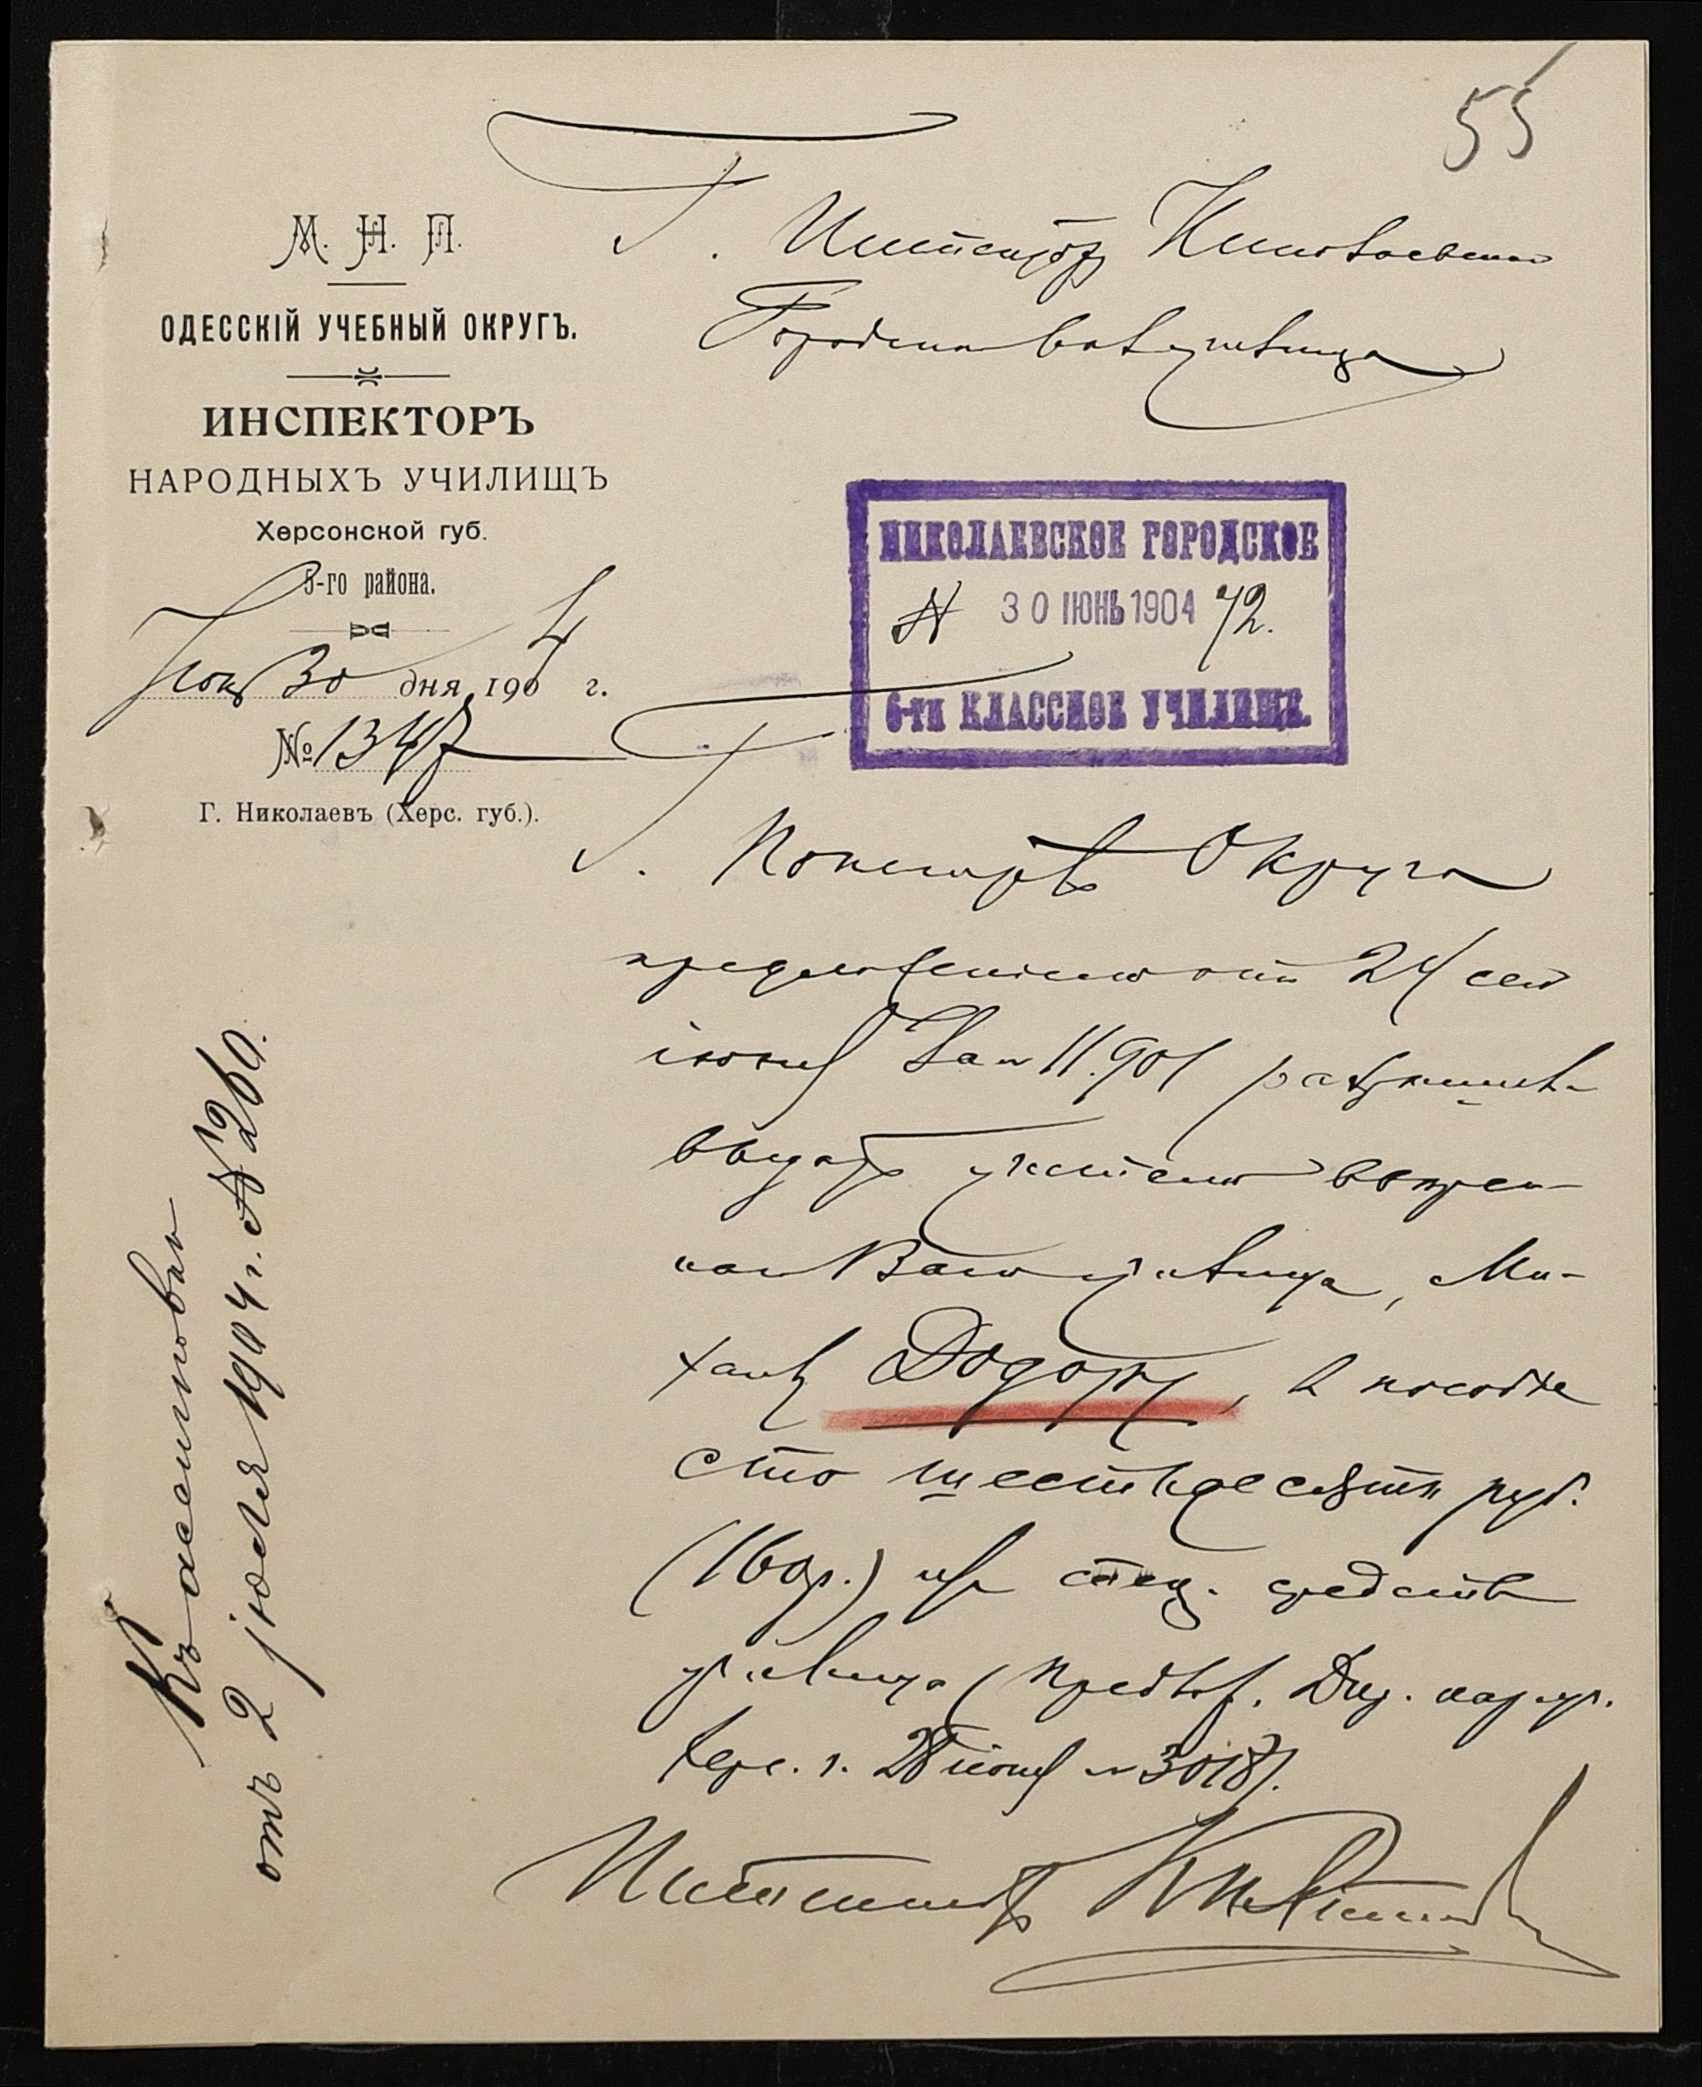 55
М. Н. П.
ОДЕССКІЙ УЧЕБНЫЙ ОКРУГЪ.
ИНСПЕКТОРЪ
НАРОДНЫХЪ УЧИЛИЩЪ
Херсонской губ.
5-го района.
Іюня 30 дня 1904 г.
№ 1347
Г. Николаевъ (Херс. губ.).
Г. Инспектору Николаевскаго
Городского училища
НИКОЛАЕВСКОЕ ГОРОДСКОЕ
№ 30 ІЮНЬ 1904 72.
6-ти КЛАССНОЕ УЧИЛИЩЕ.
Г. Попечитель Округа
предложеніемъ отъ 24 сего
іюня за № 11.901 разрѣшилъ
выдать учителю ввѣрен-
наго Вамъ училища, Ми-
хаилу Додору, въ пособіе
сто шестьдесятъ руб.
(160 р.) изъ спец. средствъ
училища (предлож. Дир. нар. уч.
Херс. г. 28 іюня № 3018).
Инспекторъ
Къ ассигновкѣ
отъ 2 іюля 1904 г. № 260.